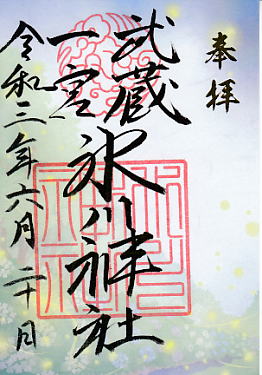 奉拝
武蔵
一宮
氷川神社
令和三年六月二十日